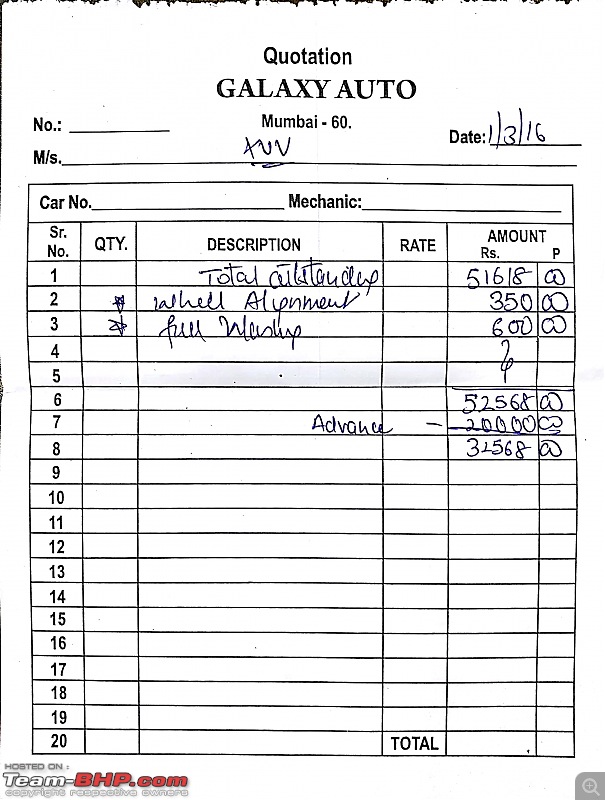 Quotation
GALAXY AUTO
Mumbai - 60.
No.:
Date: 1/3/16
M/s.
Car No. Mechanic:
Sr. No. QTY. DESCRIPTION RATE AMOUNT Rs. P
1 Total 51618 00
2 Alignment 350 00
3 full 600 00
4
5
6 52568 00
7 Advance - 20000 00
8 32568 00
9
10
11
12
13
14
15
16
17
18
19
20 TOTAL
HOSTED ON :
Team-BHP.com
copyright respective owners